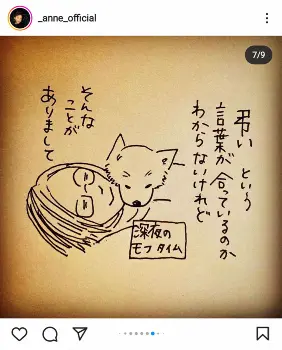 _anne_official
7/9
弔い という
言葉が 合っているのか
わからないけれど
そんな
ことが
ありまして
深夜の
モフタイム